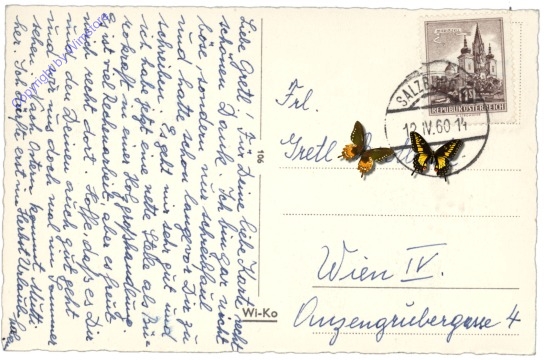 Liebe Gretl! Für Deine liebe Karte, recht
schönen Dank. Ich bin gar nicht
böse sondern nur schreibfaul
und hatte schon lange vor Dir zu
schreiben. Es geht mir sehr gut und
ich habe jetzt eine nette Stelle als Büro
kraft in einer
ist viel Rechenarbeit aber es freut
mich recht dort. Hoffe daß es Dir
und den Deinen auch gut geht
und wir uns doch mal im Sommer
sehen. Nach Ostern kommt Mutti
her. Ich dürfte erst im Herbst Urlaub
106
Wi-Ko
copyright by Winslom
REPUBLIK ÖSTERREICH
SALZB
12.IV.60-14
Frl.
Gretl
Wien IV.
Anzengrubergasse 4